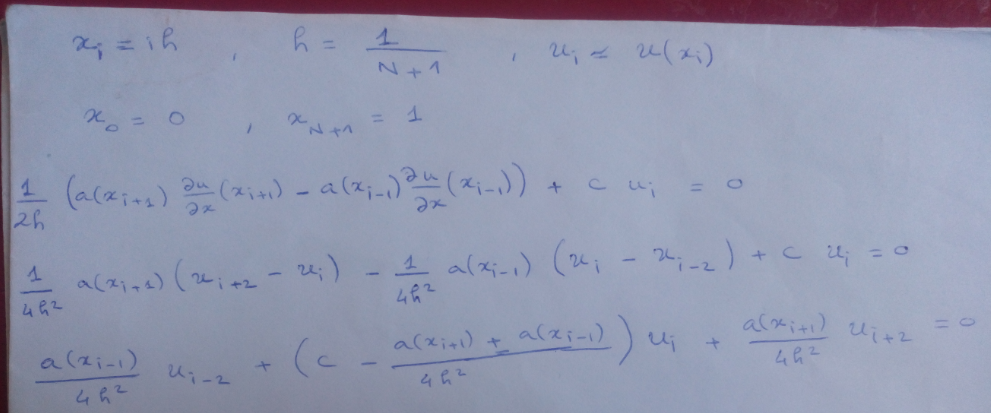 x_i = ih , h = 1/(N+1) , u_i ≃ u(x_i)
x_0 = 0 , x_{N+1} = 1
1/(2h) (a(x_{i+1}) ∂u/∂x (x_{i+1}) − a(x_{i−1}) ∂u/∂x (x_{i−1})) + c u_i = 0
1/(4h²) a(x_{i+1}) (u_{i+2} − u_i) − 1/(4h²) a(x_{i−1}) (u_i − u_{i−2}) + c u_i = 0
a(x_{i−1})/(4h²) u_{i−2} + (c − (a(x_{i+1}) + a(x_{i−1}))/(4h²)) u_i + a(x_{i+1})/(4h²) u_{i+2} = 0